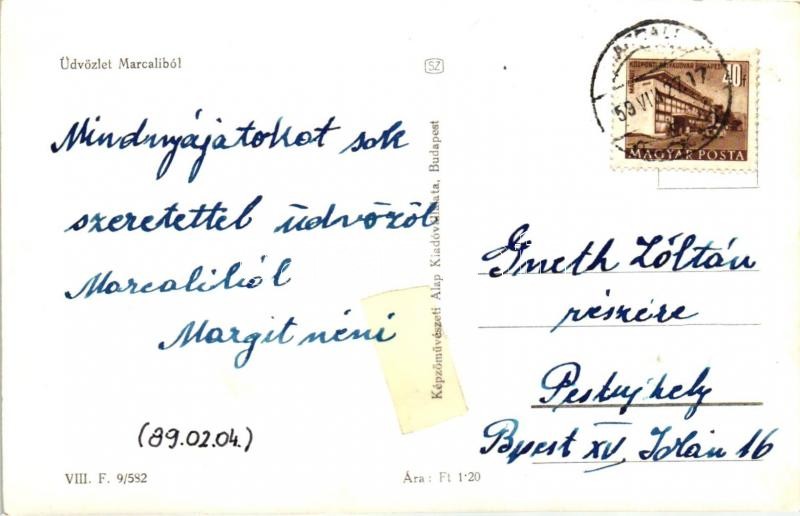 Üdvözlet Marcaliból
SZ
Mindnyájatokat sok
szeretettel üdvözöl
Marcaliból
Margit néni
(89.02.04.)
VIII. F. 9/582
Ára: Ft 1·20
Képzőművészeti Alap Kiadóvállalata, Budapest
KÖZPONTI BUDAPEST
40f
MAGYAR POSTA
MARCALI
59 VI 17
Gneth Zóltán
részére
Pestujhely
Bpest XV,
16